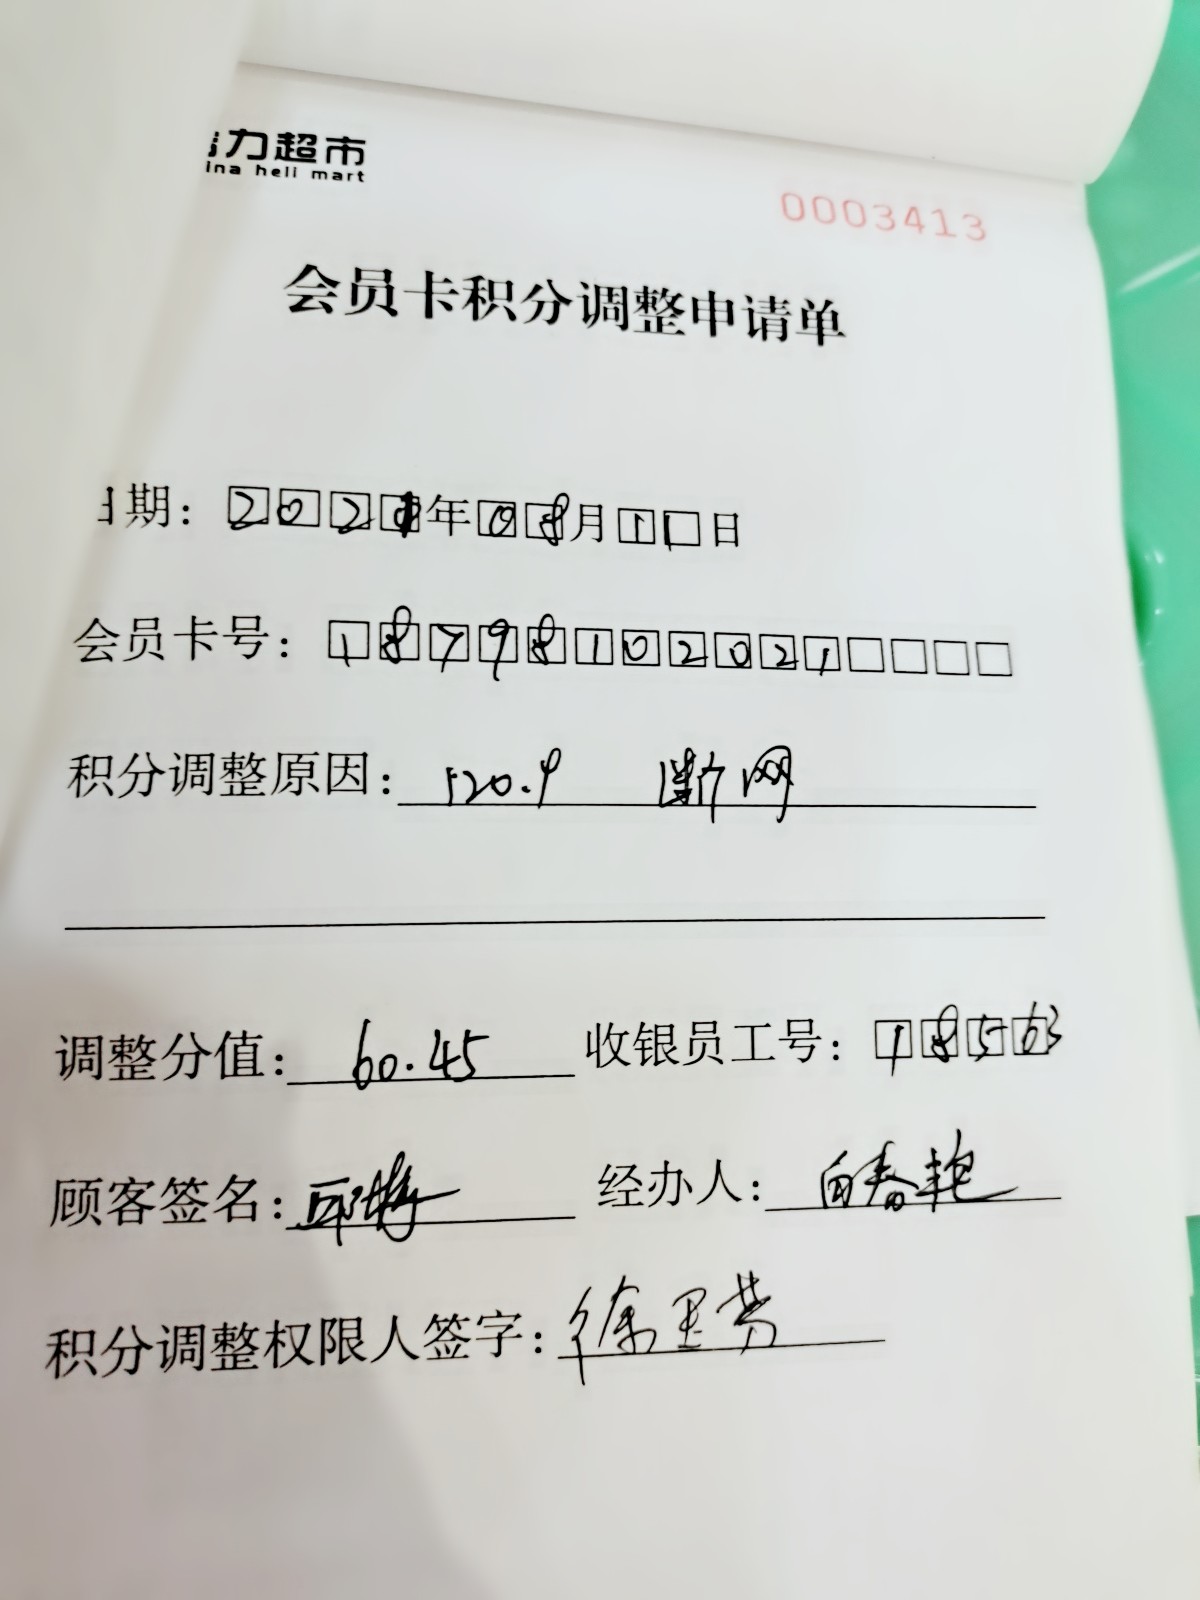 力超市
ina heli mart
0003413
会员卡积分调整申请单
日期：2021年08月11日
会员卡号：18798102021
积分调整原因：120.9 断网
调整分值：60.45 收银员工号：18563
顾客签名： 经办人：向春艳
积分调整权限人签字：徐里芬